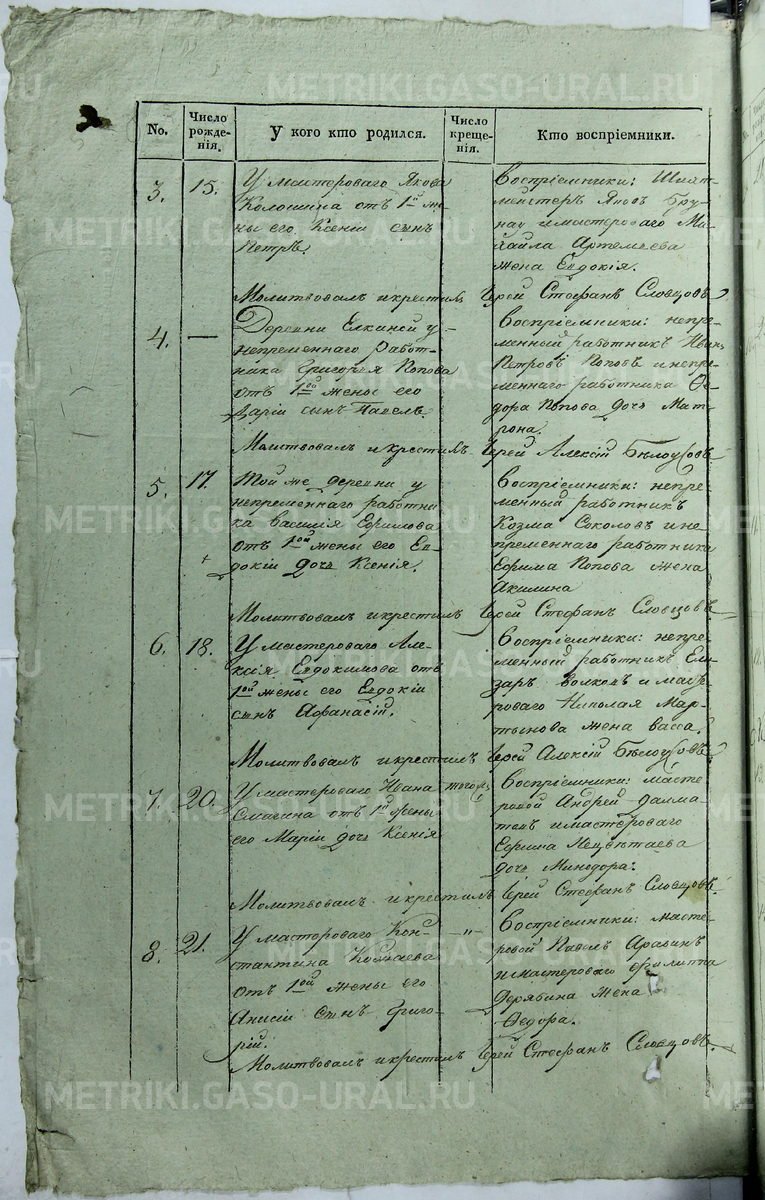 METRIKI.GASO-URAL.RU
No.
Число рожде-нія.
У кого кто родился.
Число креще-нія.
Кто воспріемники.
3.
15.
У мастероваго Якова
Колосина отъ 1ой же-
ны его Ксеніи сынъ
Петръ.
Воспріемники:
мейстеръ Яковъ Бру-
и мастероваго Ми-
хайла Артемьева
жена Евдокія.
Молитвовалъ и крестилъ Іерей Стефанъ Словцовъ
4.
—
Деревни Елкиной у
непременнаго работ-
ника Григорья Попова
отъ 1ой жены его
Даріи сынъ Павелъ.
Воспріемники: непре-
менный работникъ Иванъ
Петровъ Поповъ и непре-
меннаго работника Ѳе-
дора Попова дочь Мат-
рона.
Молитвовалъ и крестилъ Іерей Алексій Бѣлоусовъ
5.
17.
Той же деревни у
непременнаго работни-
ка Василія Ефимова
отъ 1ой жены его Ев-
докіи дочь Ксенія.
Воспріемники: непре-
менный работникъ
Козма Соколовъ и не-
пременнаго работника
Ефима Попова жена
Акилина
Молитвовалъ и крестилъ Іерей Стефанъ Словцовъ
6.
18.
У мастероваго Але-
ксія Евдокимова отъ
1ой жены его Евдокіи
сынъ Афанасій.
Воспріемники: непре-
менный работникъ Ели-
заръ Волковъ и масте-
роваго Николая Мар-
тынова жена Васса.
Молитвовалъ и крестилъ Іерей Алексій Бѣлоусовъ
7.
20.
У мастероваго Ивана
Смагина отъ 1ой жены
его Маріи дочь Ксенія
тогожъ
Воспріемники: масте-
ровой Андрей Далма-
товъ и мастероваго
Ефима Нецветаева
дочь Минодора.
Молитвовалъ и крестилъ Іерей Стефанъ Словцовъ
8.
21.
У мастероваго Кон-
стантина
отъ 1ой жены его
Анисіи сынъ Григо-
рій.
—„—
Воспріемники: масте-
ровой Павелъ
и мастероваго Филиппа
Дерябина жена
Ѳедора.
Молитвовалъ и крестилъ Іерей Стефанъ Словцовъ.